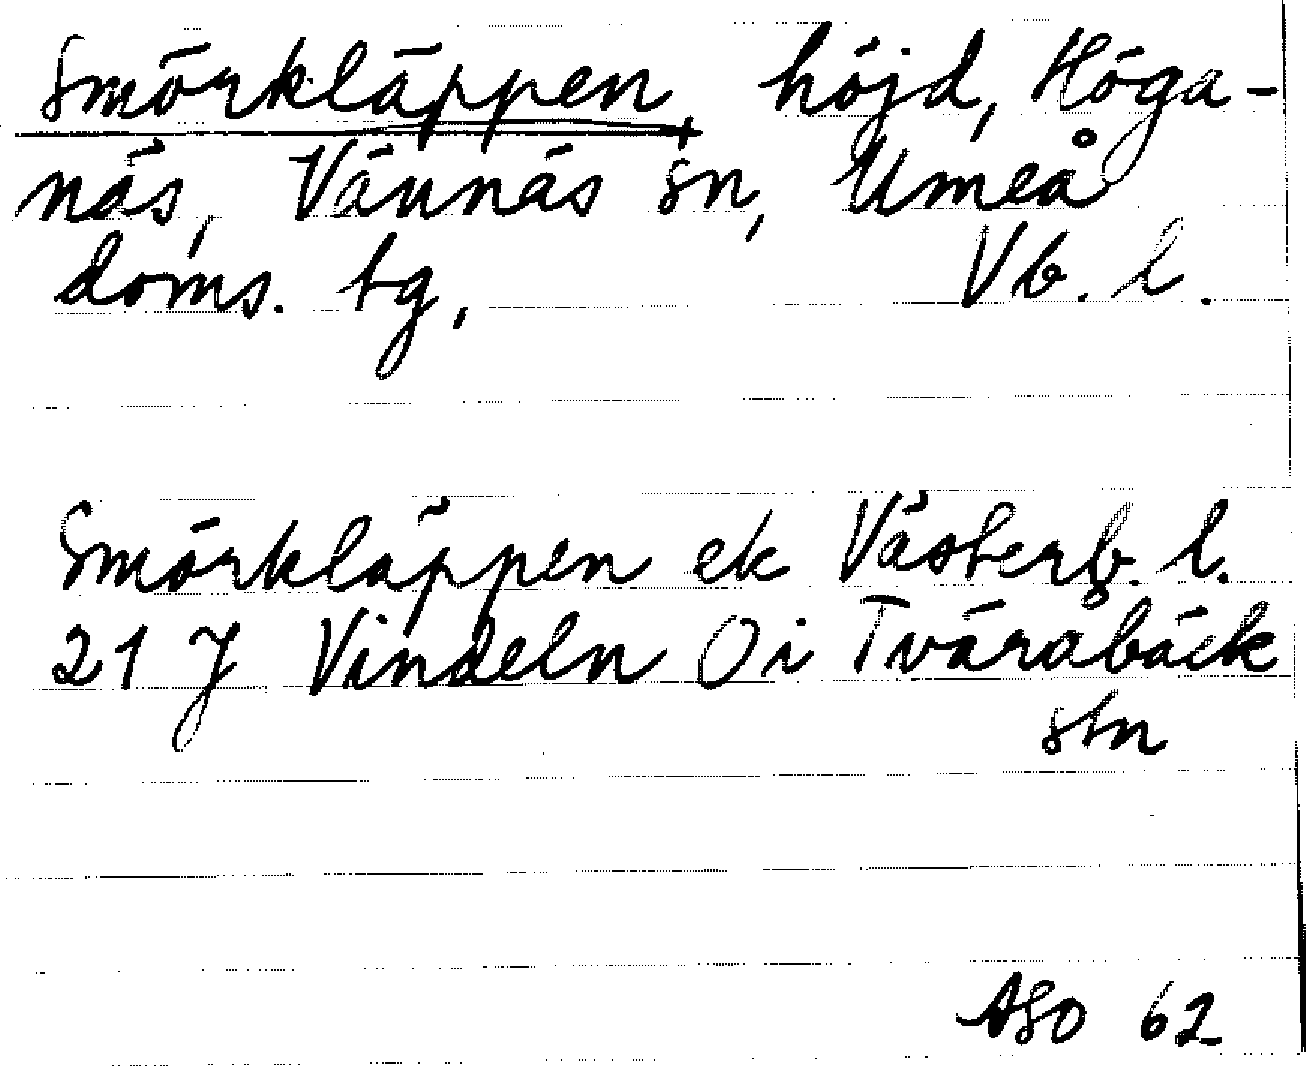 Smörkläppen, höjd, Höga-
näs, Vännäs sn, Umeå
doms. tg, Vb. l.
Smörkläppen ek Västerb. l.
21 J Vindeln Oi Tvärabäck
stn
ASO 62